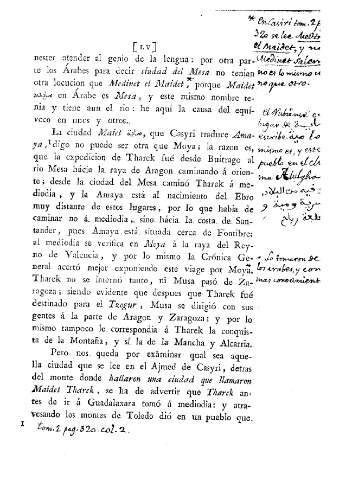 [LV]
nester atender al genio de la lengua: por otra par-
te los Árabes para decir ciudad del Mesa no tenian
otra locucion que Medinet el Maidet, porque Maidet
en Árabes es Mesa, y este mismo nombre te-
nia y tiene aun el rio: he aquí la causa del equí-
voco en unos y otros.
La ciudad Maiet, que Casyri traduce Ama-
ya, digo no puede ser otra que Moya: la razon es,
que la expedicion de Tharek fué desde Buitrago al
rio Mesa hácia la raya de Aragon caminando á orien-
te; desde la ciudad del Mesa caminó Tharek á me-
diodia, y la Amaya está al nacimiento del Ebro
muy distante de estos lugares, por lo que habia de
caminar no á mediodia, sino hácia la costa de San-
tander, pues Amaya está situada cerca de Fontibre:
al mediodia se verifica en Moya á la raya del Rey-
no de Valencia, y por lo mismo la Crónica Ge-
neral acertó mejor exponiendo este viage por Moya.
Tharek no se internó tanto, ni Musa pasó de Za-
ragoza; siendo evidente que despues que Tharek fué
destinado para el Txegur, Musa se dirigió con sus
gentes á la parte de Aragon y Zaragoza; y por lo
mismo tampoco le correspondia á Tharek la conquis-
ta de la Montaña, y sí la de la Mancha y Alcarria.
Pero nos queda por exâminar qual sea aque-
lla ciudad que se lee en el Ajmed de Casyri, detras
del monte donde hallaron una ciudad que llamaron
Maidet Tharek, se ha de advertir que Tharek an-
tes de ir á Guadalaxara tomó á mediodia: y atra-
vesando los montes de Toledo dió en un pueblo que
tom. 2 pag. 320. col. 2.
* En Casiri tom. 2 p.
320 se lee Medit
el Maidet, y no
Medinet Salem
no es lo mismo u
no que otro.
lo mismo es, y este
pueblo en el cli